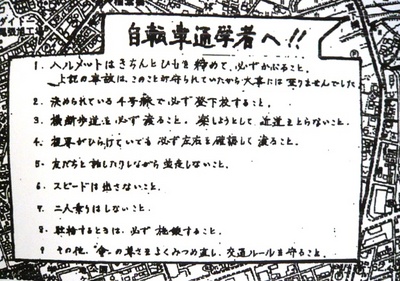 自転車通学者へ!!
1. ヘルメットはきちんとひもを締めて、必ずかぶること。
上記の事故は、このことが守られていたから大事には至りませんでした
2. 決められている4号線で必ず登下校すること。
3. 横断歩道を必ず渡ること。楽しようとして、近道をとらないこと。
4. 視界がひらけていても必ず左右を確認して渡ること。
5. 友だちと話したりしながら並走しないこと。
6. スピードは出さないこと。
7. 二人乗りはしないこと。
8. 駐輪するときは、必ず施錠すること。
9 その他、命の尊さをよくみつめ直し、交通ルールを守ること。